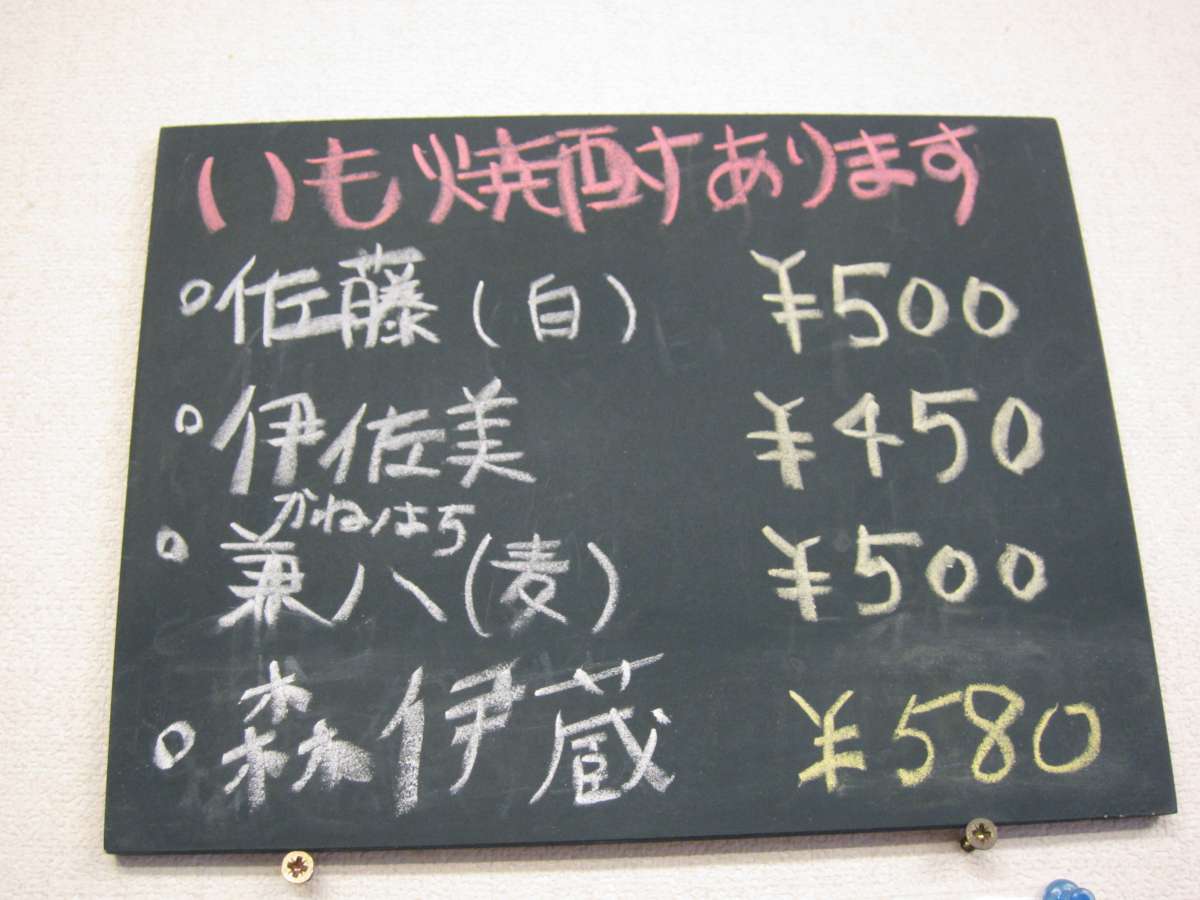 いも焼酎あります
佐藤(白) ¥500
伊佐美 ¥450
かねはち
兼八(麦) ¥500
森伊蔵 ¥580